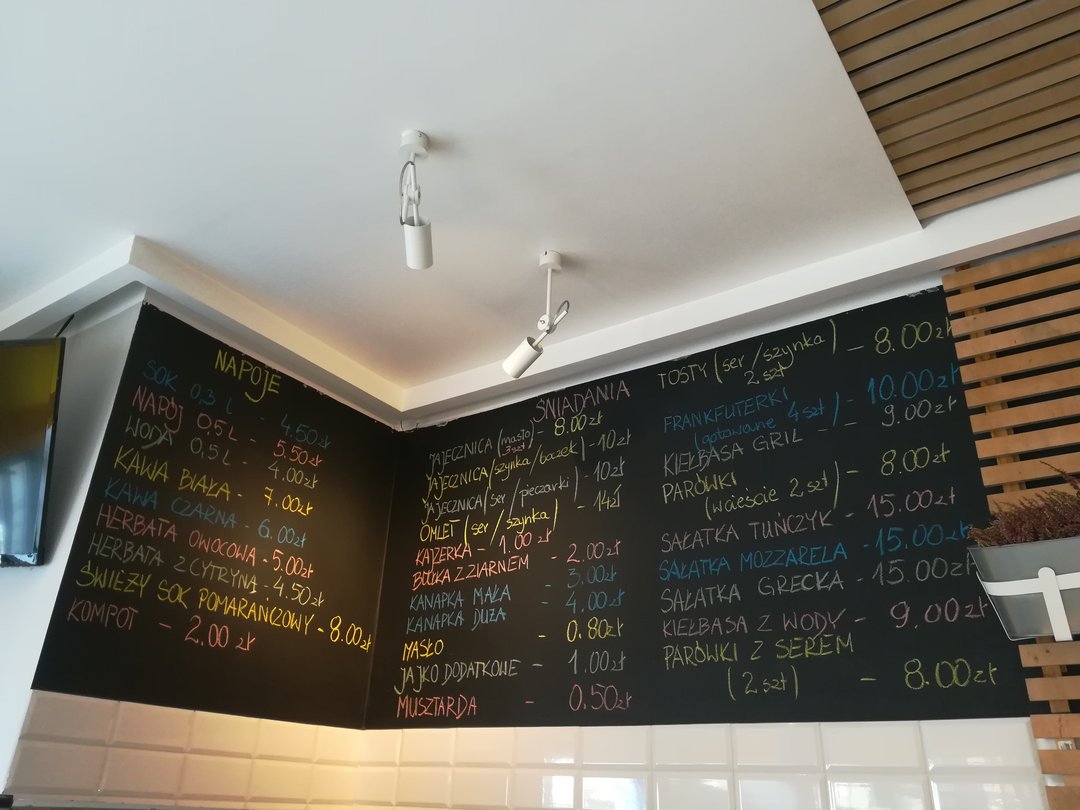 NAPOJE
SOK 0,3 L - 4.50zł
NAPÓJ 0,5L - 5.50zł
WODA 0,5L - 4.00zł
KAWA BIAŁA - 7.00zł
KAWA CZARNA - 6.00zł
HERBATA OWOCOWA - 5.00zł
HERBATA Z CYTRYNĄ - 4.50zł
ŚWIEŻY SOK POMARAŃCZOWY - 8.00zł
KOMPOT - 2.00 zł
ŚNIADANIA
JAJECZNICA (masło) - 8.00zł
3 szt
JAJECZNICA (szynka/boczek) - 10zł
JAJECZNICA (ser/pieczarki) - 10zł
OMLET (ser/szynka) - 14zł
KAJZERKA - 1.00 zł
BUŁKA Z ZIARNEM - 2.00zł
KANAPKA MAŁA - 3.00zł
KANAPKA DUŻA - 4.00zł
MASŁO - 0.80zł
JAJKO DODATKOWE - 1.00zł
MUSZTARDA - 0.50zł
TOSTY (ser/szynka) - 8.00zł
2 szt
FRANKFUTERKI - 10.00zł
(gotowane 4 szt)
KIEŁBASA GRIL - 9.00zł
PARÓWKI - 8.00zł
(w cieście 2 szt)
SAŁATKA TUŃCZYK - 15.00zł
SAŁATKA MOZZARELA - 15.00zł
SAŁATKA GRECKA - 15.00zł
KIEŁBASA Z WODY - 9.00zł
PARÓWKI Z SEREM
(2 szt) - 8.00zł